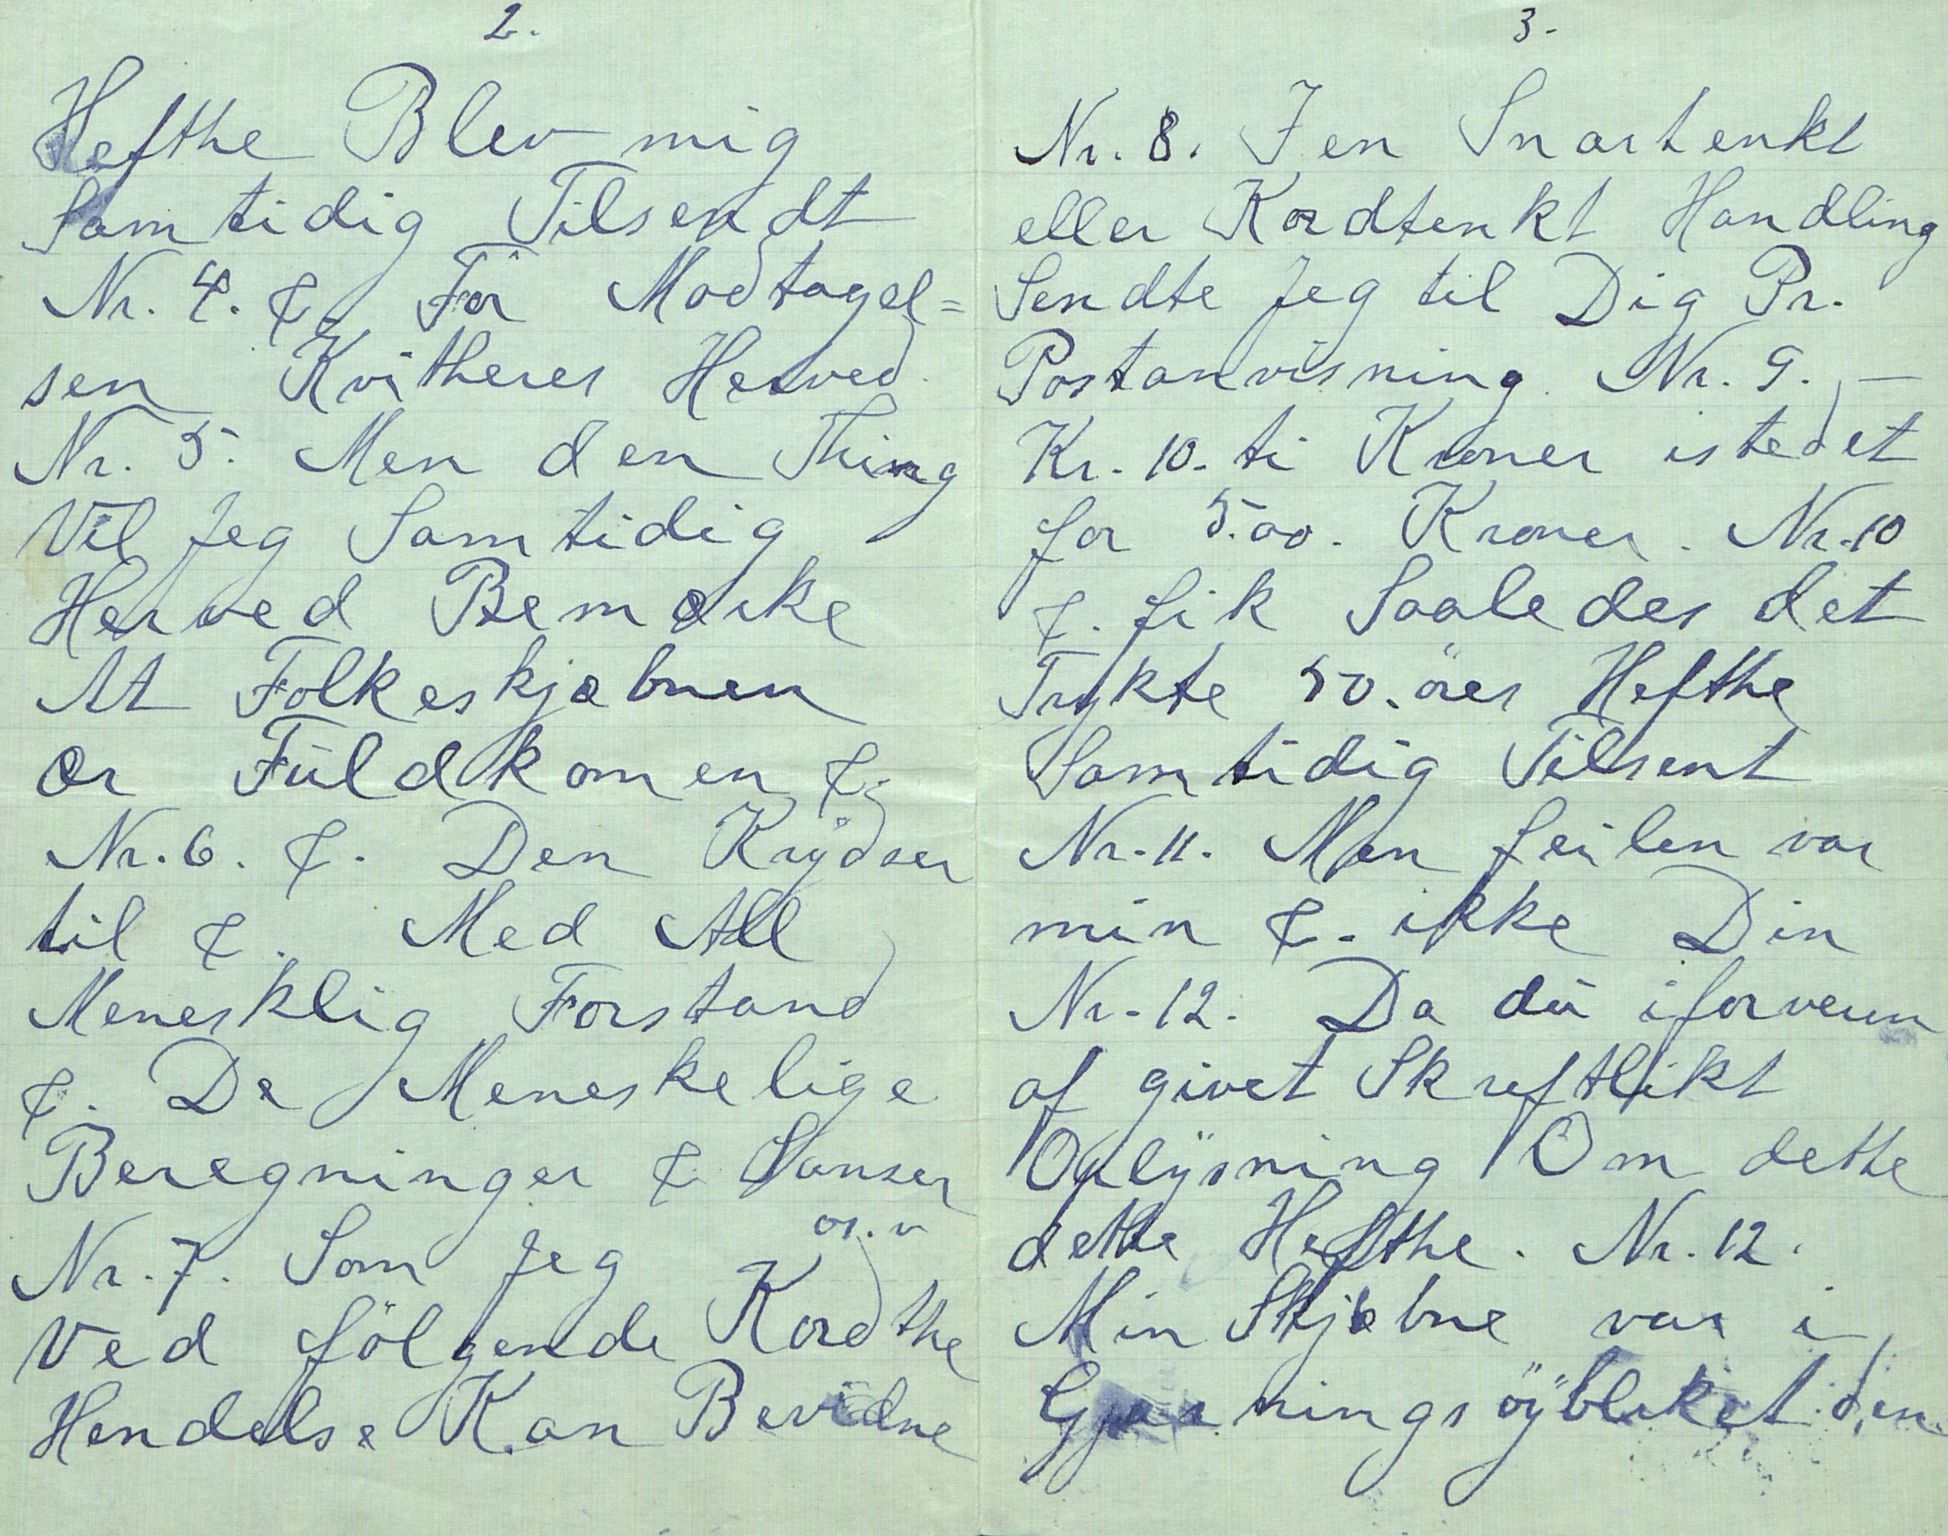 2.
Hefthe Blev mig
Samtidig Tilsendt
Nr. 4. &. For Modtagel=
sen Kvitheres Herved.
Nr. 5. Men den Thing
Vil Jeg Samtidig
Herved Bemærke
At Folkeskjæbnen
er Fuldkomen &.
Nr. 6. &. Den Krydser
til &. Med All
Menesklig Forstand
&. De Meneskelige
Beregninger & Sanser
os. v
Nr. 7. Som Jeg
Ved følgende Kordthe
Hendelse Kan Bevidne
3.
Nr. 8. I en Snartenkt
eller Kordtenkt Handling
Sendte Jeg til Dig Pr.
Postanvisning. Nr. 9. —
Kr. 10. ti Kroner istedet
for 5.00. Kroner. Nr. 10
&. fik Saaledes det
Trykte 50. öres Hefthe
Samtidig Tilsent
Nr. 11. Men feilen var
min &. ikke Din
Nr. 12. Da du iforveien
af givet Skreftlikt
Oplÿsning Om dette
dette Hefthe. Nr. 12.
Min Skjebne var i
Gjerningsöÿbliket den